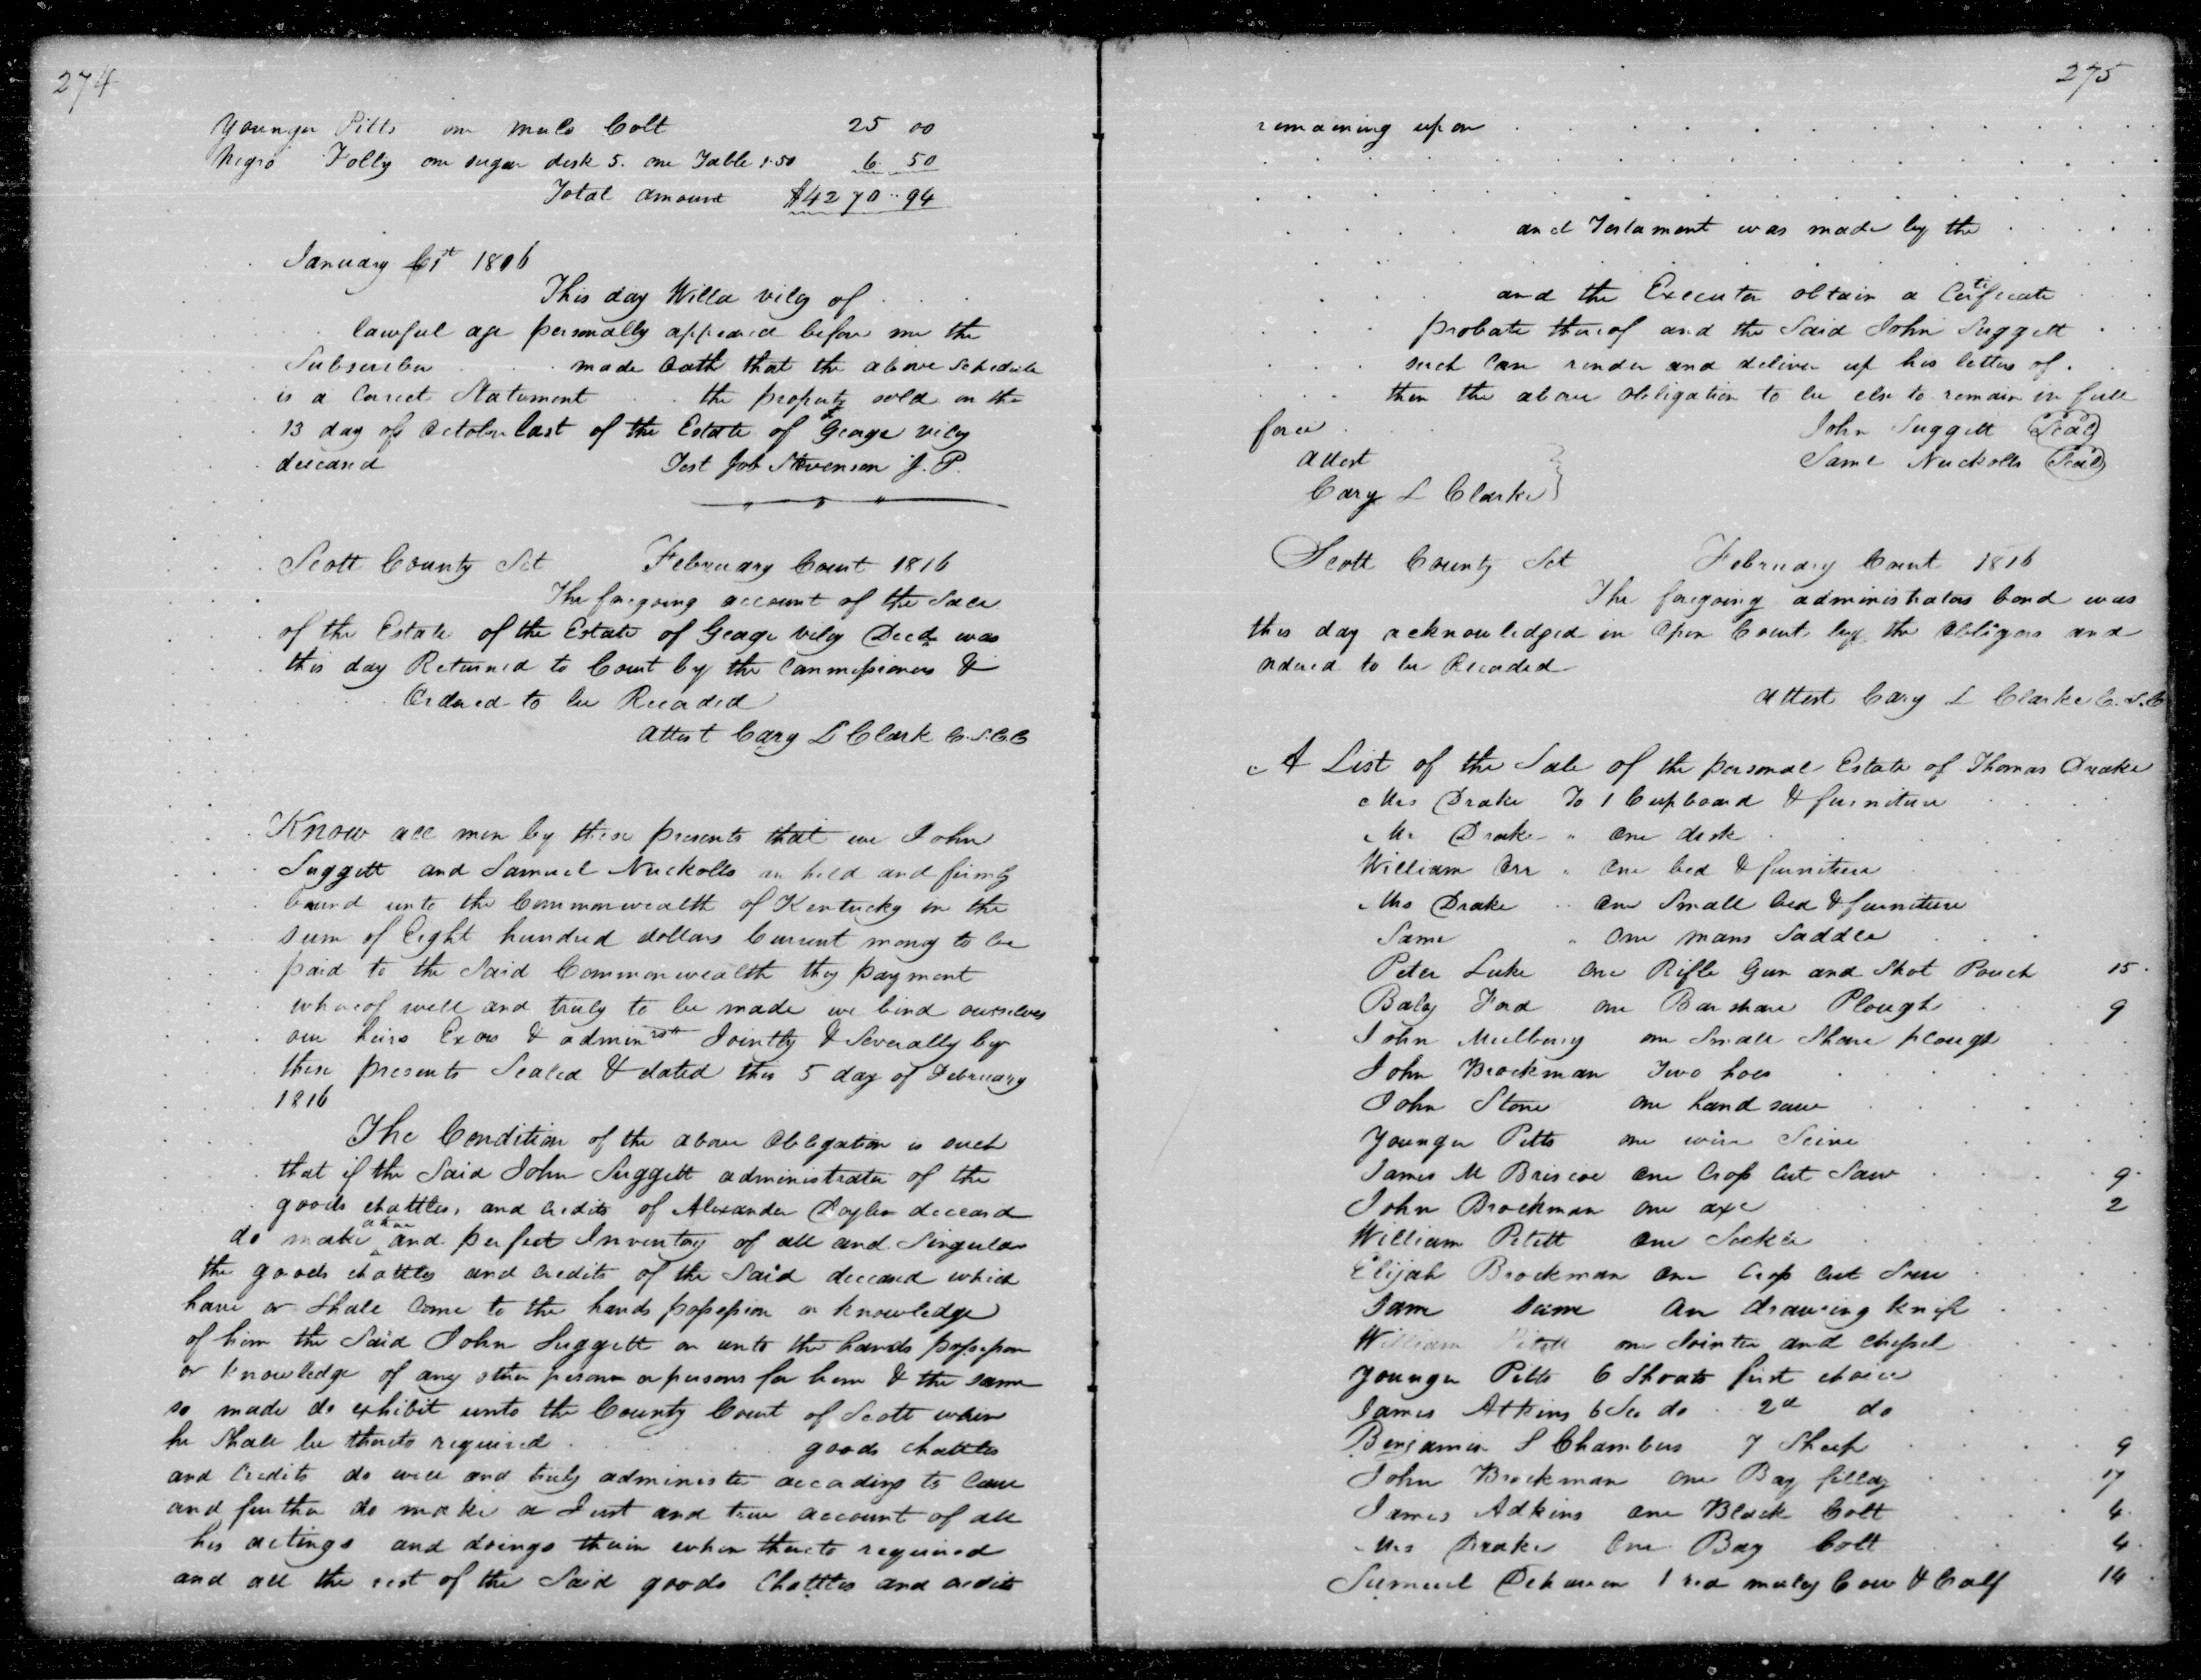 274
Younger Pitts one Mule Colt 25 00
Negro Folly one sugar desk 5. one Table 1.50 6. 50
Total amount $4270..94
January 1st 1816
This day Willa viley of . . .
lawful age personally appeared before me the
Subscriber . . made Oath that the above Schedule
is a Correct Statement . . the property sold on the
13 day of October last of the Estate of George viley
deceased Test Job Stevenson J. P.
Scott County Sct February Court 1816
The foregoing account of the Sale
of the Estate of the Estate of George viley Decd was
this day Returned to Court by the Commissioners &
Ordered to be Recorded
Attest Cary L Clark C.S.C.C
Know all men by these presents that we John
Suggett and Samuel Nuckolls are held and firmly
bound unto the Commonwealth of Kentucky in the
sum of Eight hundred dollars Current money to be
paid to the Said Commonwealth they payment
whereof well and truly to be made we bind ourselves
our heirs Exors & admin Jointly & Severally by
these presents Sealed & dated this 5 day of February
1816
The Condition of the above Obligation is such
that if the Said John Suggett administrator of the
goods chattles, and credits of Alexander deceasd
do make a true and perfect Inventory of all and Singular
the goods chattles and credits of the Said deceased which
have or Shall Come to the hands possession or knowledge
of him the Said John Suggett or unto the hands possession
or knowledge of any other person or persons for him & the same
so made do exhibit unto the County Court of Scott when
he Shall be thereto required . . . . . goods chattles
and Credits do well and truly administer according to law
and further do make a Just and true account of all
his actings and doings therein when thereto required
and all the rest of the Said goods Chattles and credits
275
remaining upon . . . . .
and Testament was made by the . . . . .
and the Executor obtain a Certificate
probate thereof and the Said John Suggett . .
such Case render and deliver up his letters of . .
then the above obligation to be else to remain in full
force . . John Suggett (Seal)
Attest Same Nuckolls (Seal)
Cary L Clarke
Scott County Sct February Court 1816
The foregoing administrators bond was
this day acknowledged in Open Court by the Obligors and
ordered to be Recorded
Attest Cary L Clarke C.S.C
A List of the Sale of the personal Estate of Thomas Drake
Mrs Drake To 1 Cupboard & furniture
Mr Drake " One desk
William Orr " One bed & furniture
Mrs Drake .. One Small bed & furniture
Same " One mans Saddle
Peter Luke One Rifle Gun and Shot Pouch 15.
Baley Ford one Barshare Plough 9
John Mulberry one Small Share plough
John Brockman Two hoes
John Stone one hand saw
Younger Pitts one wire Seive
James M Briscoe One Crop Cut Saw 9.
John Brockman one axe 2
William Petett One
Elijah Brockman One Crop Cut Saw
Sam Same An drawing knife
William Petett one Jointer and Chessel
Younger Pitts 6 Shoats first choice
James Atkins 6 do 2d do
Benjamin S Chambers 7 Sheep 9
John Brockman One Bay filley 17
James Adkins One Black Colt 4.
Mrs Drake One Bay Colt 4.
Samuel 1 red muley Cow & Calf 14